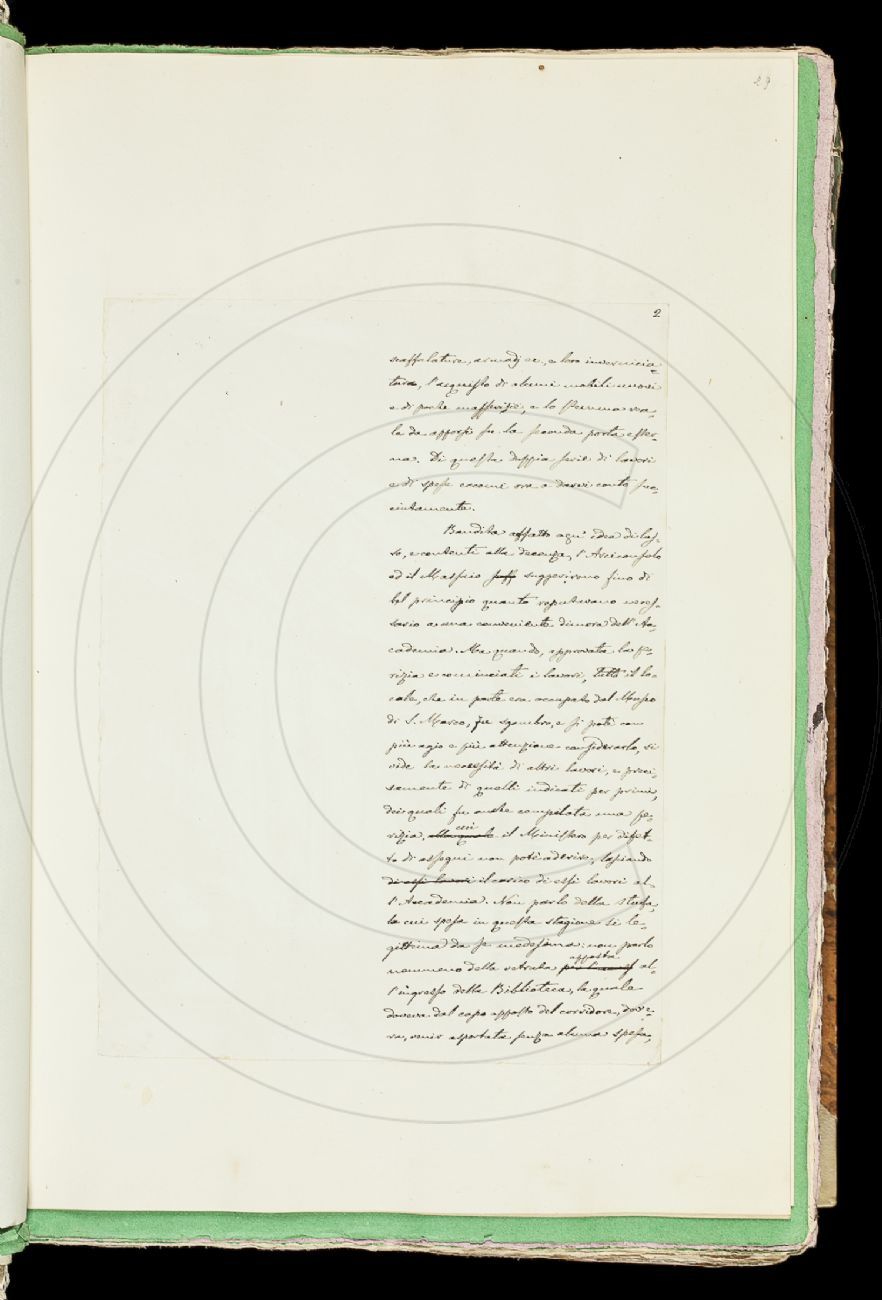 29
2
scaffalature, armadj ec., e loro invernicia-
tura, l'acquisto di alcuni mobili nuovi
e di poche masserizie, e lo stemma rea-
le da apporsi su la seconda porta ester-
na. Di questa doppia serie di lavori
e di spese eccomi ora a darvi conto suc-
cintamente.
Bandita affatto ogn' idea di lus-
so, e contenti alla decenza, l'Arciconsolo
ed il Massaio sugg suggerirono fino di
bel principio quanto reputavano neces-
sario a una conveniente dimora dell'Ac-
cademia. Ma quando, approvata la pe-
rizia e cominciati i lavori, tutto il lo-
cale, che in parte era occupato dal Museo
di S. Marco, fu sgombro, e si potè con
più agio e più attenzione considerarlo, si
vide la necessità di altri lavori, e preci-
samente di quelli indicati per primi,
dei quali fu anche compilata una pe-
rizia, alla quale cui il Ministero per difet-
to di assegni non potè aderire, lasciando
di essi lavori il carico di essi lavori al-
l'Accademia. Non parlo della stufa,
la cui spesa in questa stagione si le-
gittima da se medesima: non parlo
nemmeno della vetrata apposta al-
l'ingresso della Biblioteca, la quale
doveva dal capo opposto del corridore, dov'e-
ra, venir asportata senza alcuna spesa,